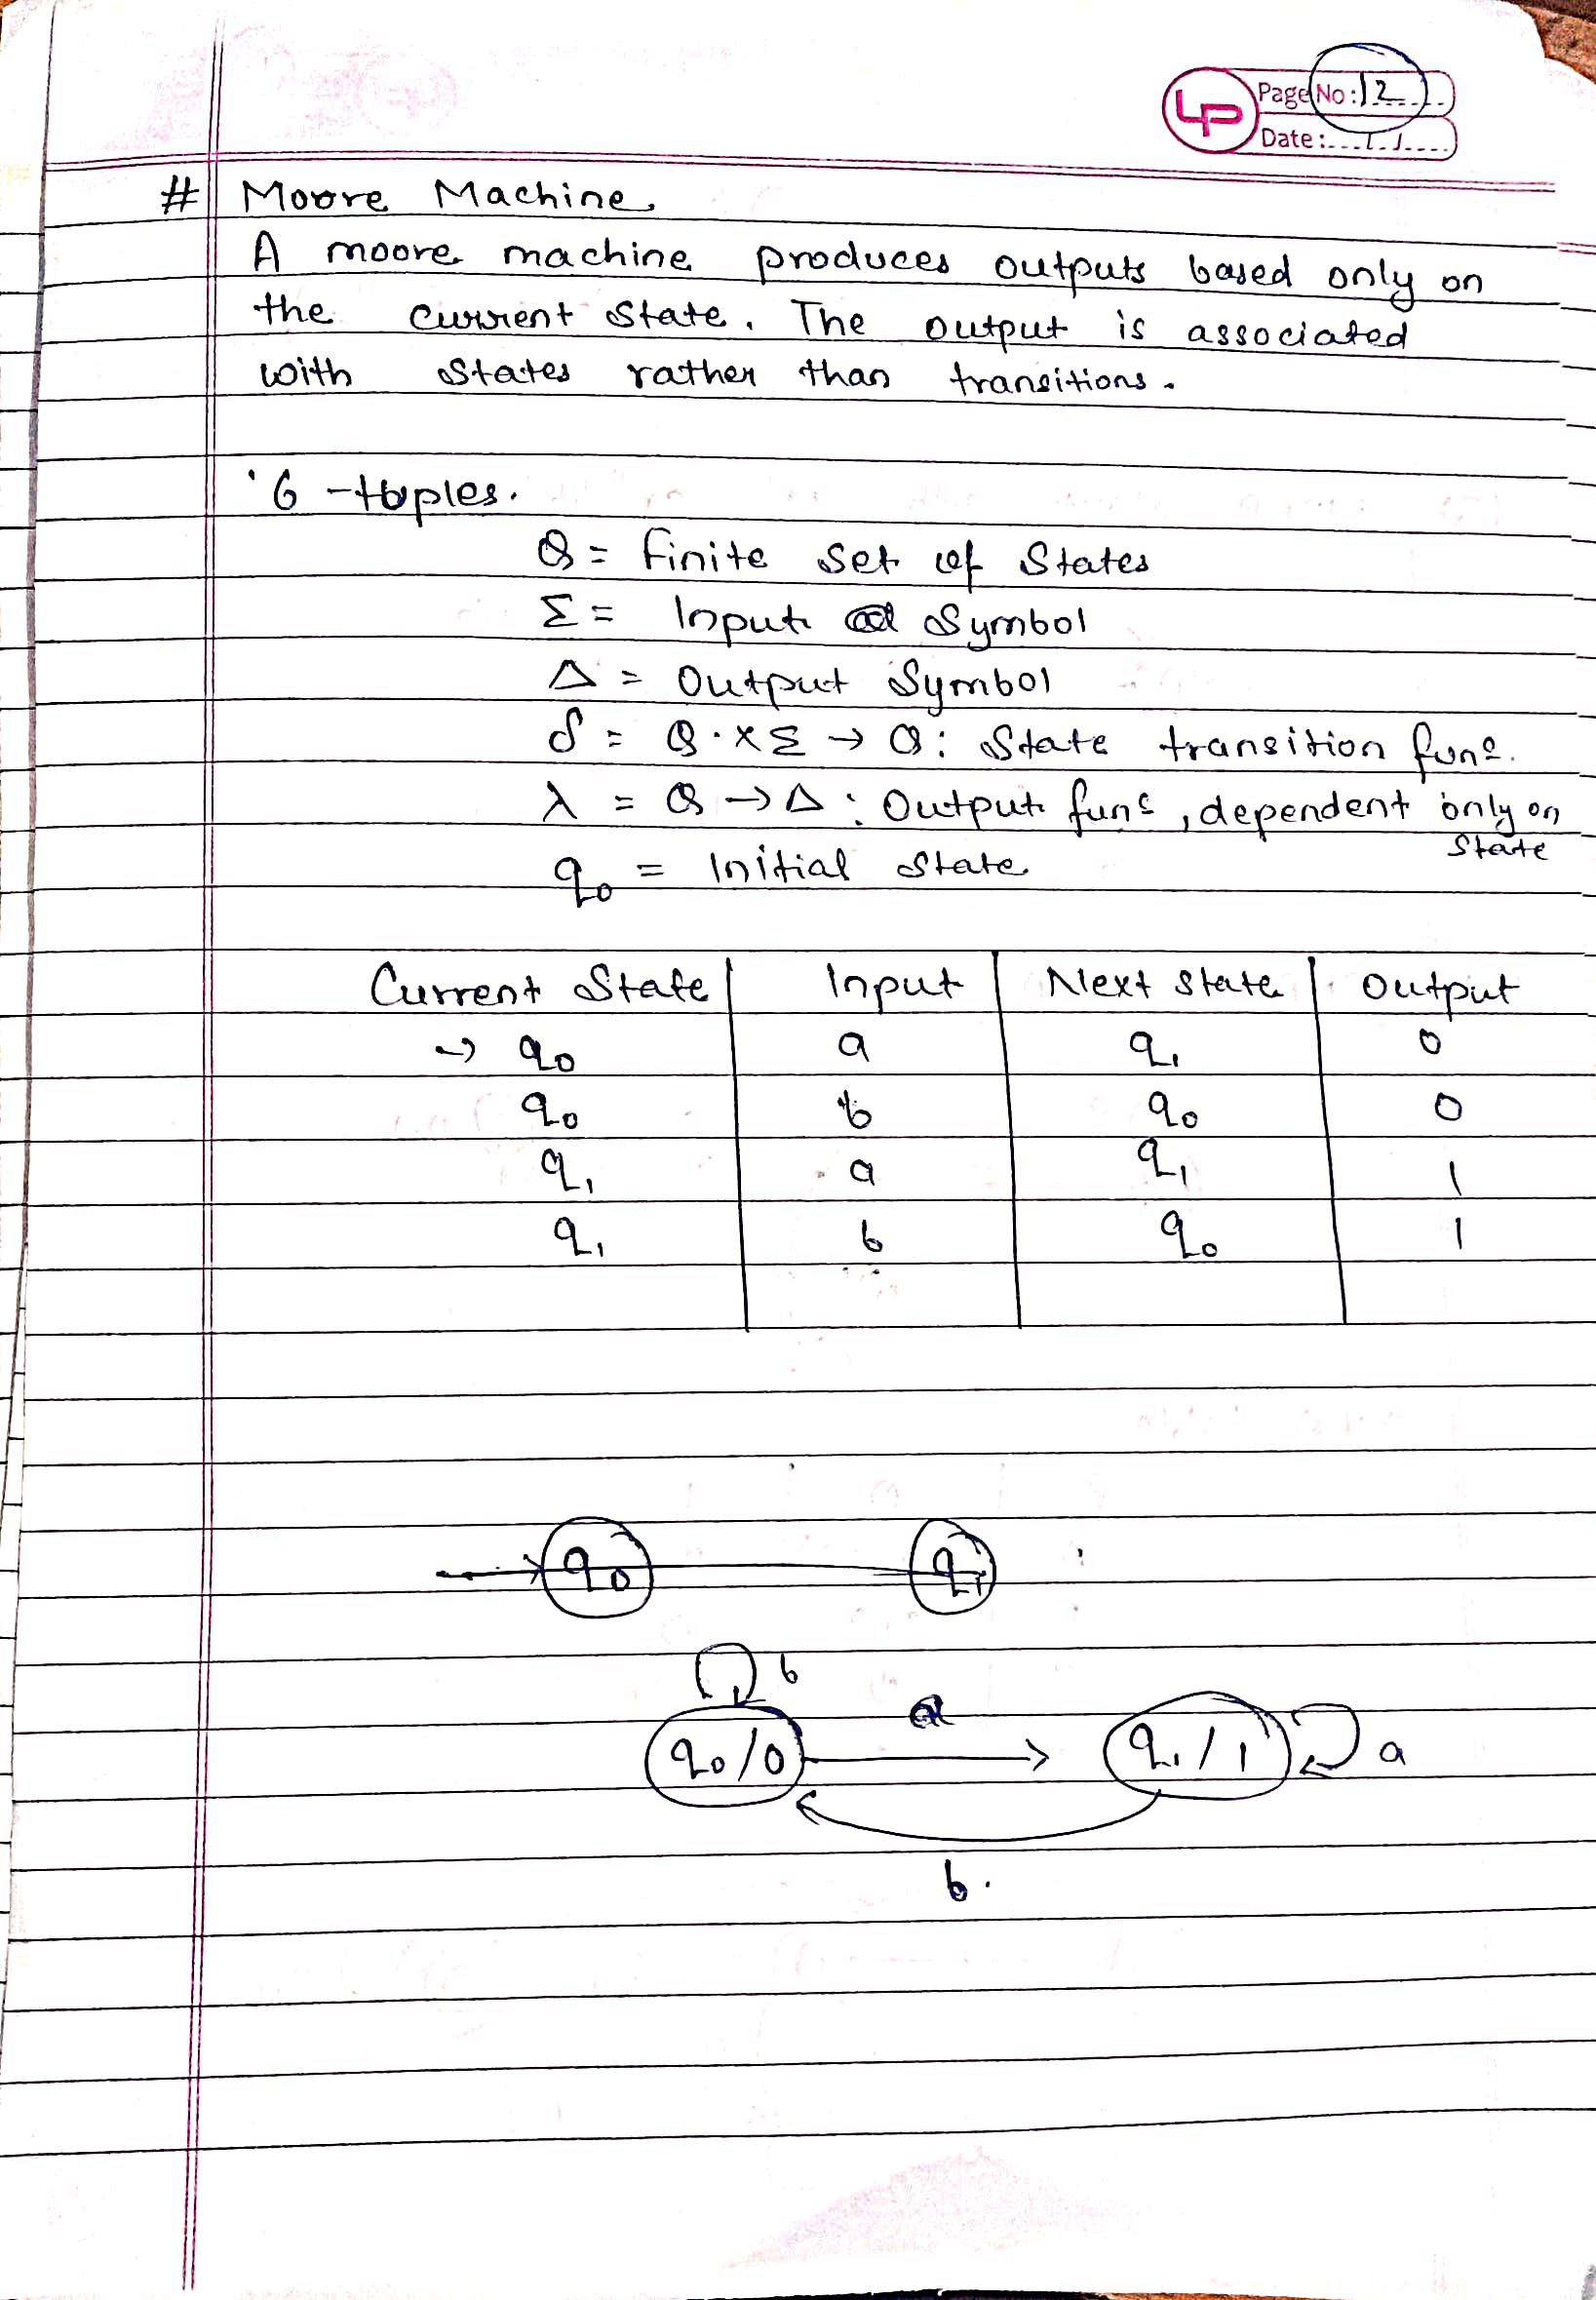 LP Page No: 12
Date: / /
# Moore Machine
A moore machine produces outputs based only on
the current state. The output is associated
with states rather than transitions.
6 - tuples.
Q = finite set of States
Σ = Input Symbol
Δ = Output Symbol
δ = Q × Σ → Q : State transition func.
λ = Q → Δ : Output func, dependent only on
state
q0 = Initial state
Current State | Input | Next state | Output
→ q0 | a | q1 | 0
q0 | b | q0 | 0
q1 | a | q1 | 1
q1 | b | q0 | 1
q0 q1
b
a
q0/0 q1/1 a
b.